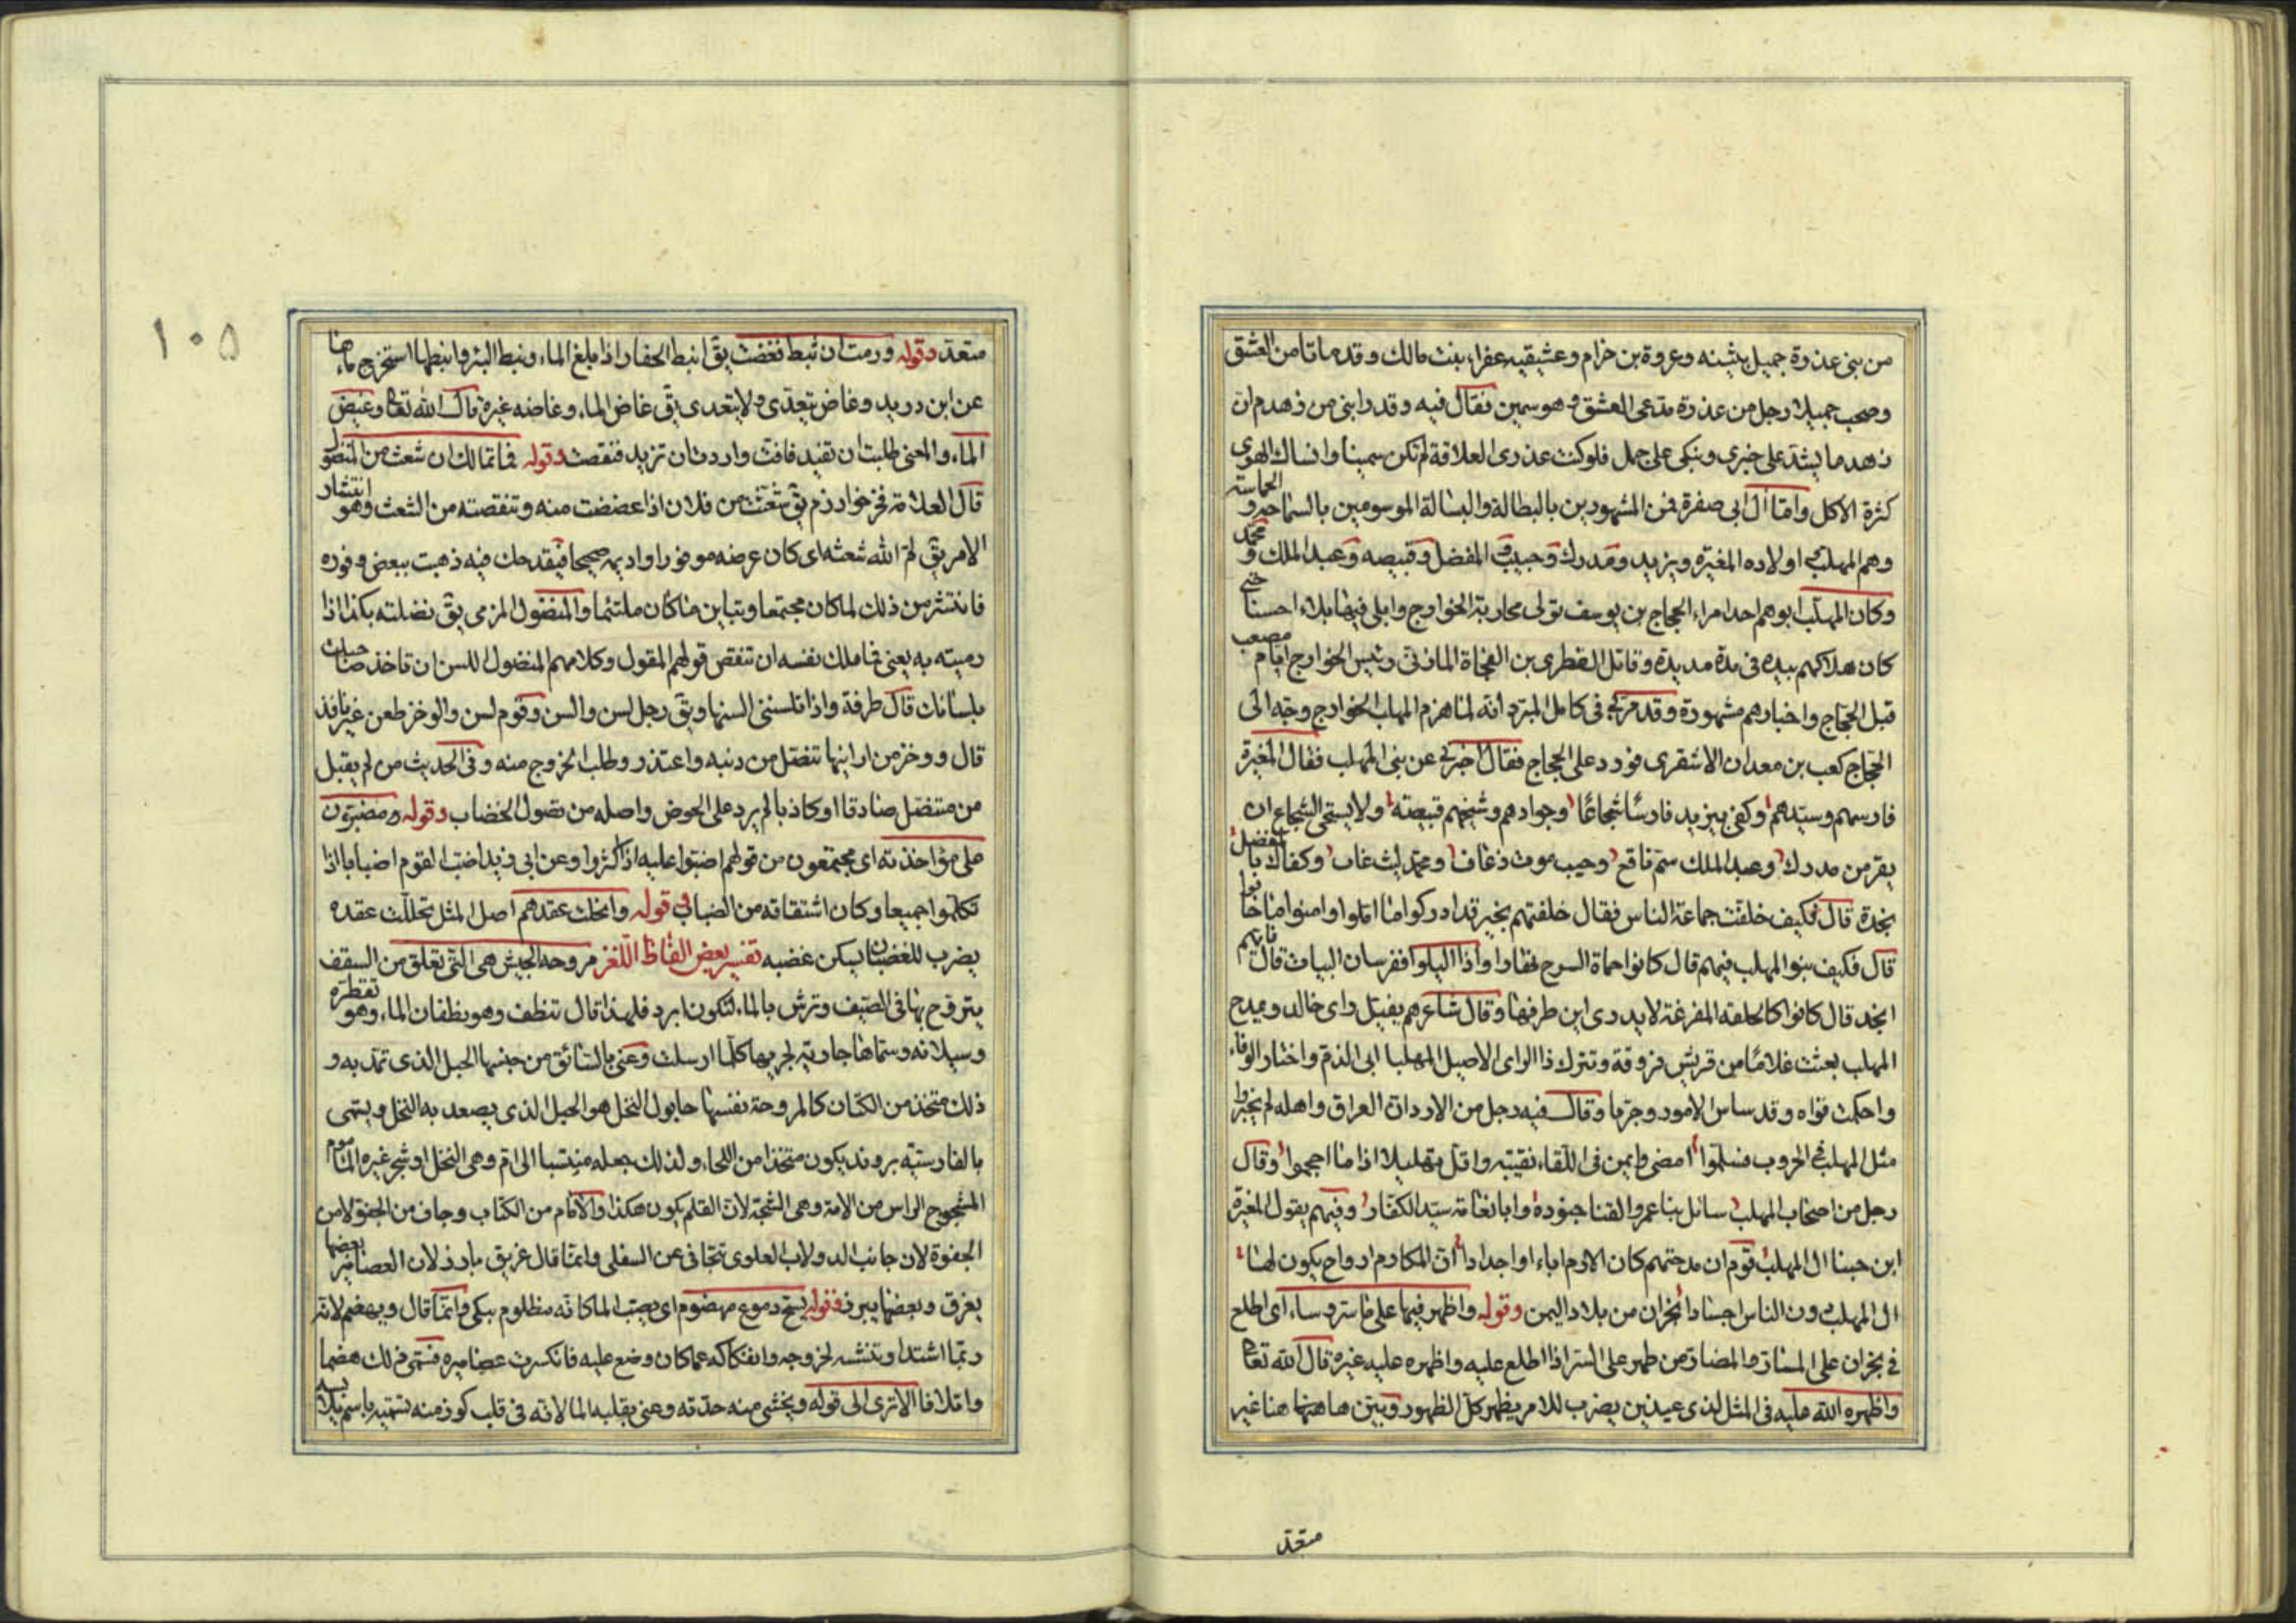 من بنى عذرة جميل بثينه وعروة بن حزام وعشيقيه عفراء بنت مالك وقد ماتا من العشق
وصحب جميلا رجل من عذرة متدعى العشق و هو سمين فقال فيه وقد رابنى من زهدم ان
زهدما يشد على خبزى ويبكى على جمل فلو كنت عذرى العلاقة لم تكن سمينا وانساك الهوى
كثرة الاكل واما آل ابى صفرة فمن المشهورين بالبطالة والبسالة الموسومين بالسماحه و الحماسة
وهم المهلب اولاده المغيرة ويزيد ومدرك وحبيب و المفضل وقبيصه وعبد الملك و محمد
وكان المهلب ابوهم احد امراء الحجاج بن يوسف تولى محاربة الخوارج وابلى فيها بلاء احسنا حتى
كان هلاكهم بيده فى مدة مديدة وقاتل القطرى بن الفجاة المازنى رئيس الخوارج ايام مصعب
قبل الحجاج واخبارهم مشهورة وقد مر بى فى كامل المبرد انه لما هزم المهلب الخوارج وجه الى
الحجاج كعب بن معدان الاشقرى فورد على الحجاج فقال اخبرنى عن بنى المهلب فقال المغيرة
فارسهم وسيدهم وكفى بيزيد فارسا شجاعا وجوادهم وشيخهم قبيصة ولا يستحى الشجاع ان
يفر من مدرك وعبد الملك سم ناقع وحبيب موت ذعاف ومحمد ليث غاب وكفاك بالمفضل
نجدة قال فكيف خلفت جماعة الناس فقال خلفتهم بخير قد ادركوا ما املوا وامنوا ما خافوا
قال فكيف بنو المهلب فيهم قال كانوا حماة السرح نهارا واذا اليلوا ففرسان البيات قال فايهم
انجد قال كانوا كالحلقه المفرغة لا يدرى اين طرفها وقال شاعرهم يفيل راى خالد ويمدح
المهلب بعثت غلاما من قريش فروقة وتترك ذا الراى الاصيل المهلبا ابى الذم واختار الوفاء
واحكمت قواه وقد ساس الامور وجربا وقال فيه رجل من الازد ان العراق واهله لم يخبروا
مثل المهلب فى الحروب فسلموا امضى وايمن فى اللقاء نقيبة واقل تهليلا اذا ما احجموا وقال
رجل من اصحاب المهلب سائل بنا عمرو القنا جنوده وابا نعامة سيد الكفار وفيهم يقول المغيرة
ابن حبنا ال المهلب قوم ان مدحتهم كان الاكارم اباء او اجدادا ان المكارم ارواح يكون لها
ال المهلب دون الناس اجسادا نجران من بلاد اليمن وقوله واظهر فيها على ما ستر وساء اى اطلع
فى نجران على المسار والمضار من ظهر على السر اذا اطلع عليه واظهره عليه غيره قال الله تعالى
واظهره الله عليه فى المثل لذى عينين يضرب للامر يظهر كل الظهور وبين هاهنا هنا غير
متعد
١٠٥
متعد وقوله ورمت ان تنبط فغضت يق انبط الحفار اذا بلغ الماء ونبط البئر وانبطها استخرج ماءها
عن ابن دريد وغاض يتعدى ولا يتعدى يق غاض الماء وغاضه غيره قال الله تعالى وغيض
الماء والمعنى طلبت ان تفيد فافت واردت ان تزيد فنقصت وقوله فما تمالك ان شعث من المنضول
قال العلامة فخر خوارزم يق شعث من فلان اذا غضضت منه وتنقصته من الشعث وهو انتشار
الامر يق لم الله شعثه اى كان عرضه موفورا واديمه صحيحا فبقدحك فيه ذهبت ببعض وفوره
فانتشر من ذلك لما كان مجتمعا وتباين ما كان ملتئما والمنضول المرمى يق نضلته بكذا اذا
رميته به يعنى فما ملك نفسه ان تنقص قولهم المقول وكلامهم المنضول اللسن ان تاخذ صاحبك
بلسانك قال طرفة واذا تلسننى السنها ويق رجل لسن والسن وقوم لسن والوخز طعن غير نافذ
قال ووخز من ارابنها تنصل من ذنبه واعتذر وطلب الخروج منه وفى الحديث من لم يقبل
من متنصل صادقا او كاذبا لم يرد على الحوض واصله من نصول الخضاب وقوله ومضبون
على مؤاخذته اى مجتمعون من قولهم اضبوا عليه اذا كثروا وعن ابى زيد اضب القوم اضبابا اذا
تكلموا جميعا وكان اشتقاقه من الضباب قوله وانحلت عقدهم اصل المثل تحللت عقده
يضرب للغضبان يسكن غضبه تفسير بعض الفاظ اللغز مروحه الخيش هى التى تعلق من السقف
يتروح بها فى الصيف وترش بالماء لتكون ابرد فلهذا قال تنطف وهو نطفان الماء وهو تقطره
وسيلانه وسماها جارية لجريها كلما ارسلت وعنى بالسائق من جنسها الحبل الذى تمد به و
ذلك متخذ من الكتان كالمروحة نفسها حابول النخل هو الحبل الذى يصعد به النخل ويسمى
بالفارسية بروند يكون متخذا من اللحاء ولذلك جعله منتسبا الى ام وهى النخل او شجر غيره الماموم
المشجوج الراس من الامة وهى الشجة لان القلم يكون هكذا والاقلام من الكتاب وجاف من الجفو لا من
الجفوة لان جانب الدولاب العلوى يتجافى عن السفلى وانما قال غريق بارز لان العصامير بعضها
يغرق وبعضها يبرز وقوله يسح دموع مهضوم اى يصب الماء كانه مظلوم يبكى وانما قال ويهضم لانه
ربما اشتد او تنشب لخروجه وانفكاكه عما كان وضع عليه فانكسرت عصاميره فسمى ذلك هضما
واتلافا الا ترى الى قوله ويخشى منه حدته وعنى بقلبه الماء لانه فى قلب كوز منه تسميه باسم